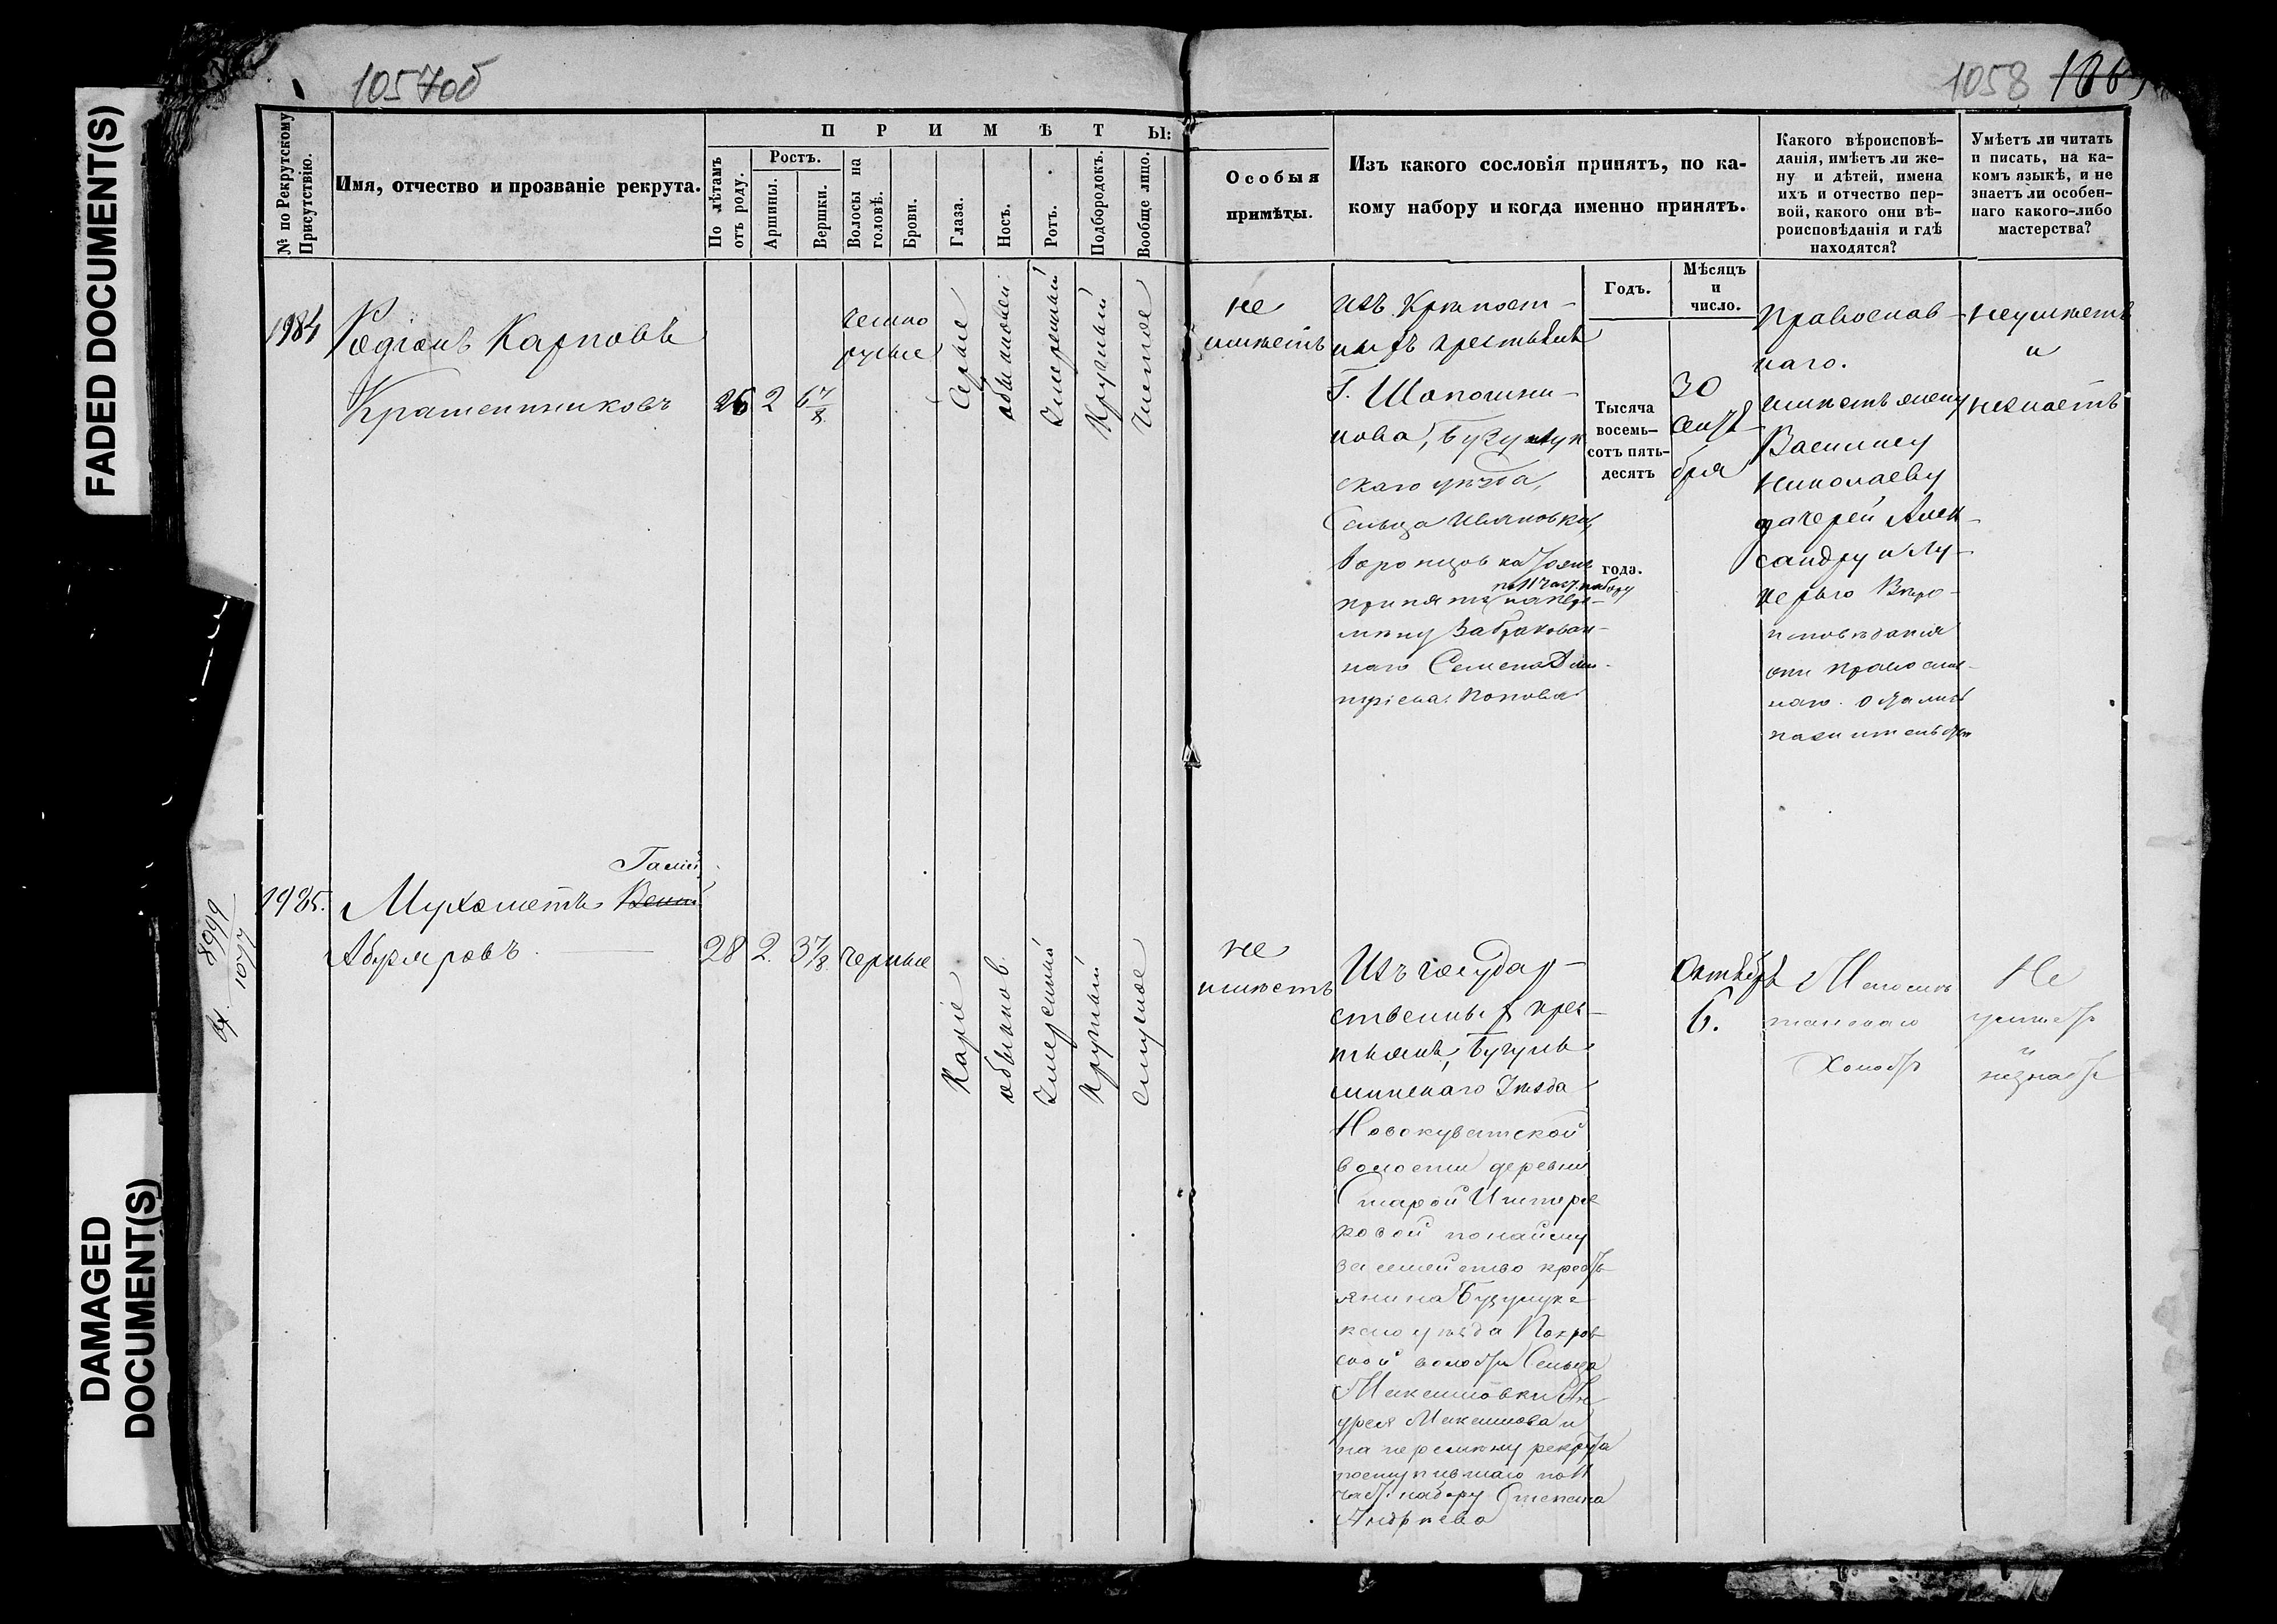 FADED DOCUMENT(S)
DAMAGED
DOCUMENT(S)
1057об
1058
№ по Рекрутскому
Присутствію.
Имя, отчество и прозваніе рекрута.
ПРИМѢТЫ:
По лѣтамъ
отъ роду.
Ростъ.
Аршины.
Вершки.
Волосы на
головѣ.
Брови.
Глаза.
Носъ.
Ротъ.
Подбородокъ.
Вообще лицо.
Особыя
примѣты.
Изъ какого сословія принятъ, по ка-
кому набору и когда именно принятъ.
Какого вѣроисповѣ-
данія, имѣетъ ли же-
ну и дѣтей, имена
ихъ и отчество пер-
вой, какого они вѣ-
роисповѣданія и гдѣ
находятся?
Умѣетъ ли читать
и писать, на ка-
комъ языкѣ, и не
знаетъ ли особен-
наго какого-либо
мастерства?
Годъ.
Мѣсяцъ
и
число.
1984
Родіонъ Карповъ
Крашенинниковъ
26
2
6 7/8
темно
русые
Серые
обыкновен
Умеренный
Круглый
Чистое
не
имѣетъ
изъ Крѣпост-
ныхъ крестьянъ
Г. Шапошни-
кова, Бузулук
скаго уѣзда,
Сельца Ивановки,
Воронцовка тожъ
по 11 част. набору
принятъ на пере-
мѣну Забракован-
наго Семена Дми-
тріева Попова
Тысяча
восемь-
сотъ пять-
десятъ
года.
30
Сентя-
бря
Православ-
наго.
имѣетъ жену
Василису
Николаеву
дочерей Алек-
сандру и Лу-
керью Вѣро-
исповѣданія
они православ-
наго. Остались
на жительствѣ
неумѣетъ
и
незнаетъ
1985.
Галій
Мухаметъ
28
2.
3 7/8
черные
Каріе
обыкнов.
Умеренный
Круглый
смуглое
не
имѣетъ
Изъ государ-
ственныхъ крес-
тьянъ, Бугуль
минскаго Уѣзда
Новокуватской
волости деревни
Старой Иштеря
ковой по найму
за семейство кресть
янина Бузулукс
каго уѣзда Покров
ской волости Сельца
Максимовки Ан
дрея Максимова и
на перемѣну рекрута
поступившаго по 11
част. набору Степана
Андреева
Октября
6.
Магоме
танскаго
Холостъ
Не
умѣетъ
и
незнаетъ
8999
1077